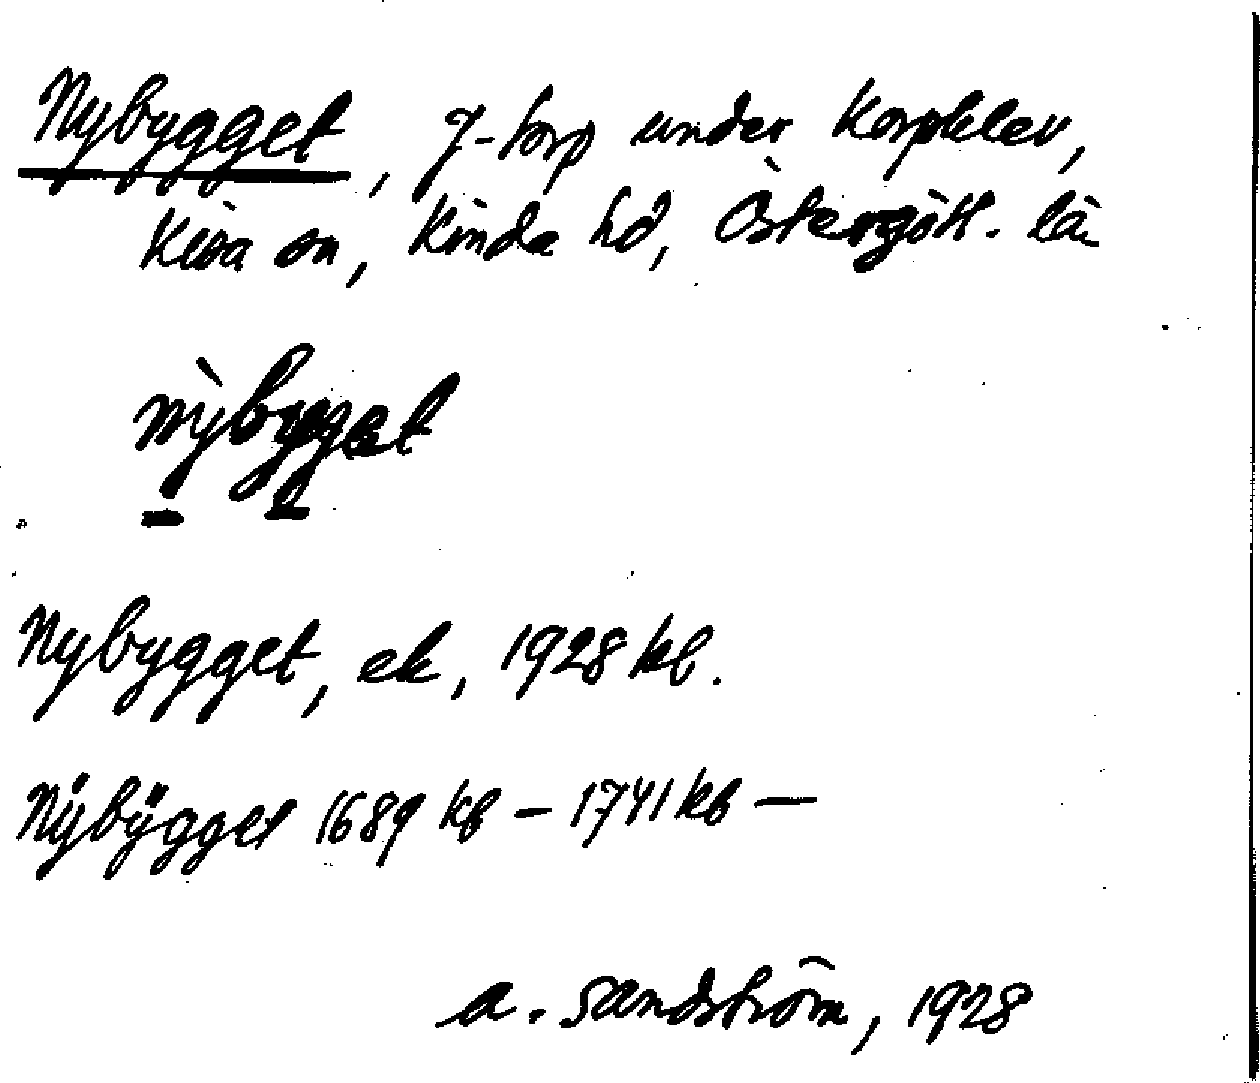 Nybygget, J-torp under Korpklev,
Kisa sn, Kinda hd, Östergötl. län
nỳbygget
Nybygget, ek, 1928 kb.
Nÿbÿgget 1689 kb – 1741 kb —
A. Sandström, 1928